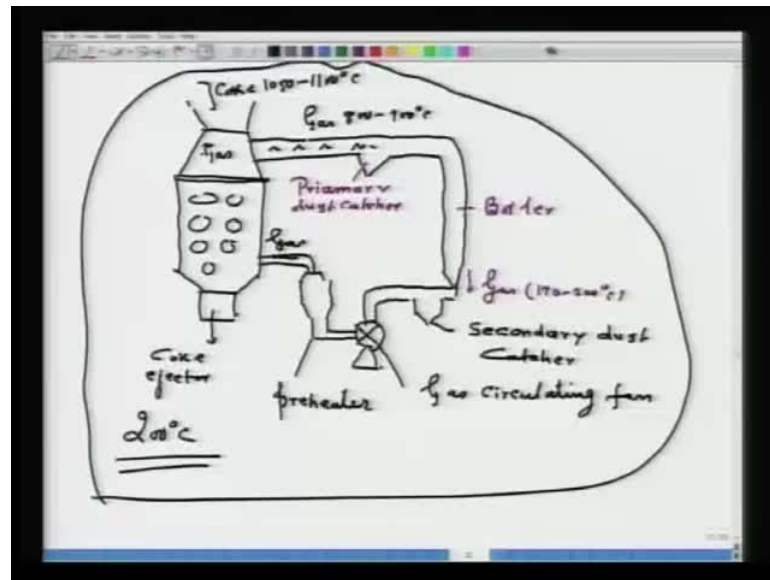 Coke 1050-1100°C
Gas 800-900°C
Gas
Priamary
dust Catcher
Boiler
Gas
Gas (170-200°C)
Secondary dust
Catcher
Coke
ejector
preheater
Gas circulating fan
200°C